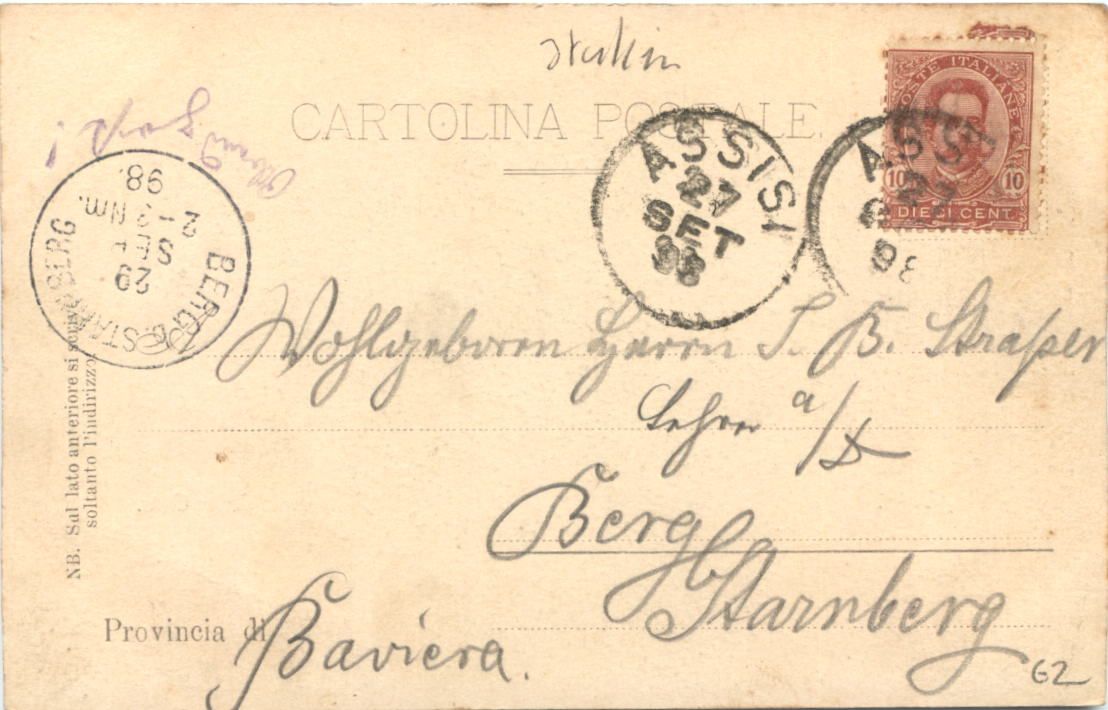 CARTOLINA POSTALE
POSTE ITALIANE
10 10
DIECI CENT.
ASSISI
27
SET
98
ASSISI
27
SET
98
BERG b. STARNBERG
29
SEPT
2-3 Nm.
98.
Wohlgeboren Herrn J. B. Straßer
Lehrer a/D
Berg
b/Starnberg
Provincia di Baviera.
NB. Sul lato anteriore si scrive
soltanto l'indirizzo
62